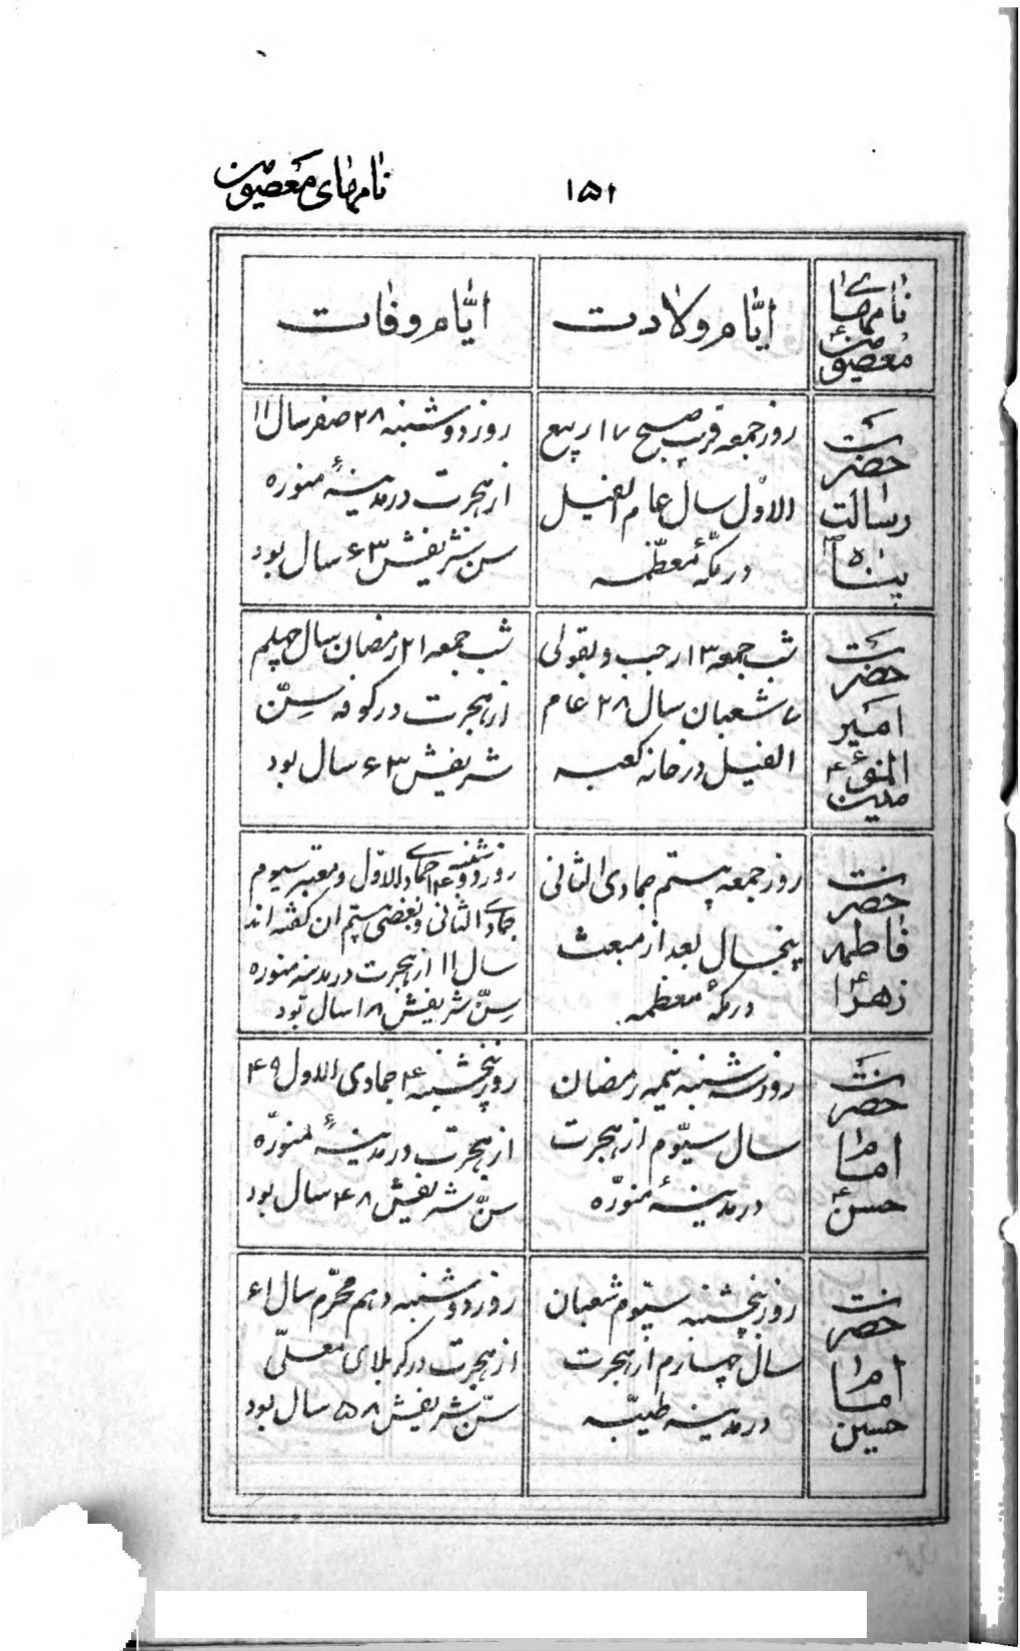 نامهای معصومین
۱۵۱
نامهای
معصومین
ایّام ولادت
ایّام وفات
حضرت
رسالت
پناه ص
روز جمعه قریب صبح ۱۷ ربیع
الاوّل سال عام الفیل
در مکّهٔ معظّمه
روز دوشنبه ۲۸ صفر سال ۱۱
از هجرت در مدینهٔ منوره
سن شریفش ۶۳ سال بود
حضرت
امیر
المؤ
منین ع
شب جمعه ۱۳ رجب و بقولی
۷ شعبان سال ۲۸ عام
الفیل در خانه کعبه
شب جمعه ۲۱ رمضان سال چهلم
از هجرت در کوفه سِنّ
شریفش ۶۳ سال بود
حضرت
فاطمه
زهرا ع
روز جمعه بیستم جمادی الثانی
پنجسال بعد از مبعث
در مکهٔ معظمه
روز دوشنبه ۱۴ جمادی الاوّل و معتبر سیوم
جمادی الثانی و بعضی بیستم ان گفته اند
سال ۱۱ از هجرت در مدینه منوره
سِنّ شریفش ۱۸ سال بود
حضرت
امام
حسن ع
روز سه شنبه نیمه رمضان
سال سیّوم از هجرت
در مدینهٔ منوّره
روز پنجشنبه ۴ جمادی الاول ۴۹
از هجرت در مدینهٔ منوّره
سنّ شریفش ۴۸ سال بود
حضرت
امام
حسین
روز پنجشنبه سیّوم شعبان
سال چهارم از هجرت
در مدینه طیّبه
روز دوشنبه دهم محرّم سال ۶۱
از هجرت در کربلای معلّی
سنّ شریفش ۵۸ سال بود